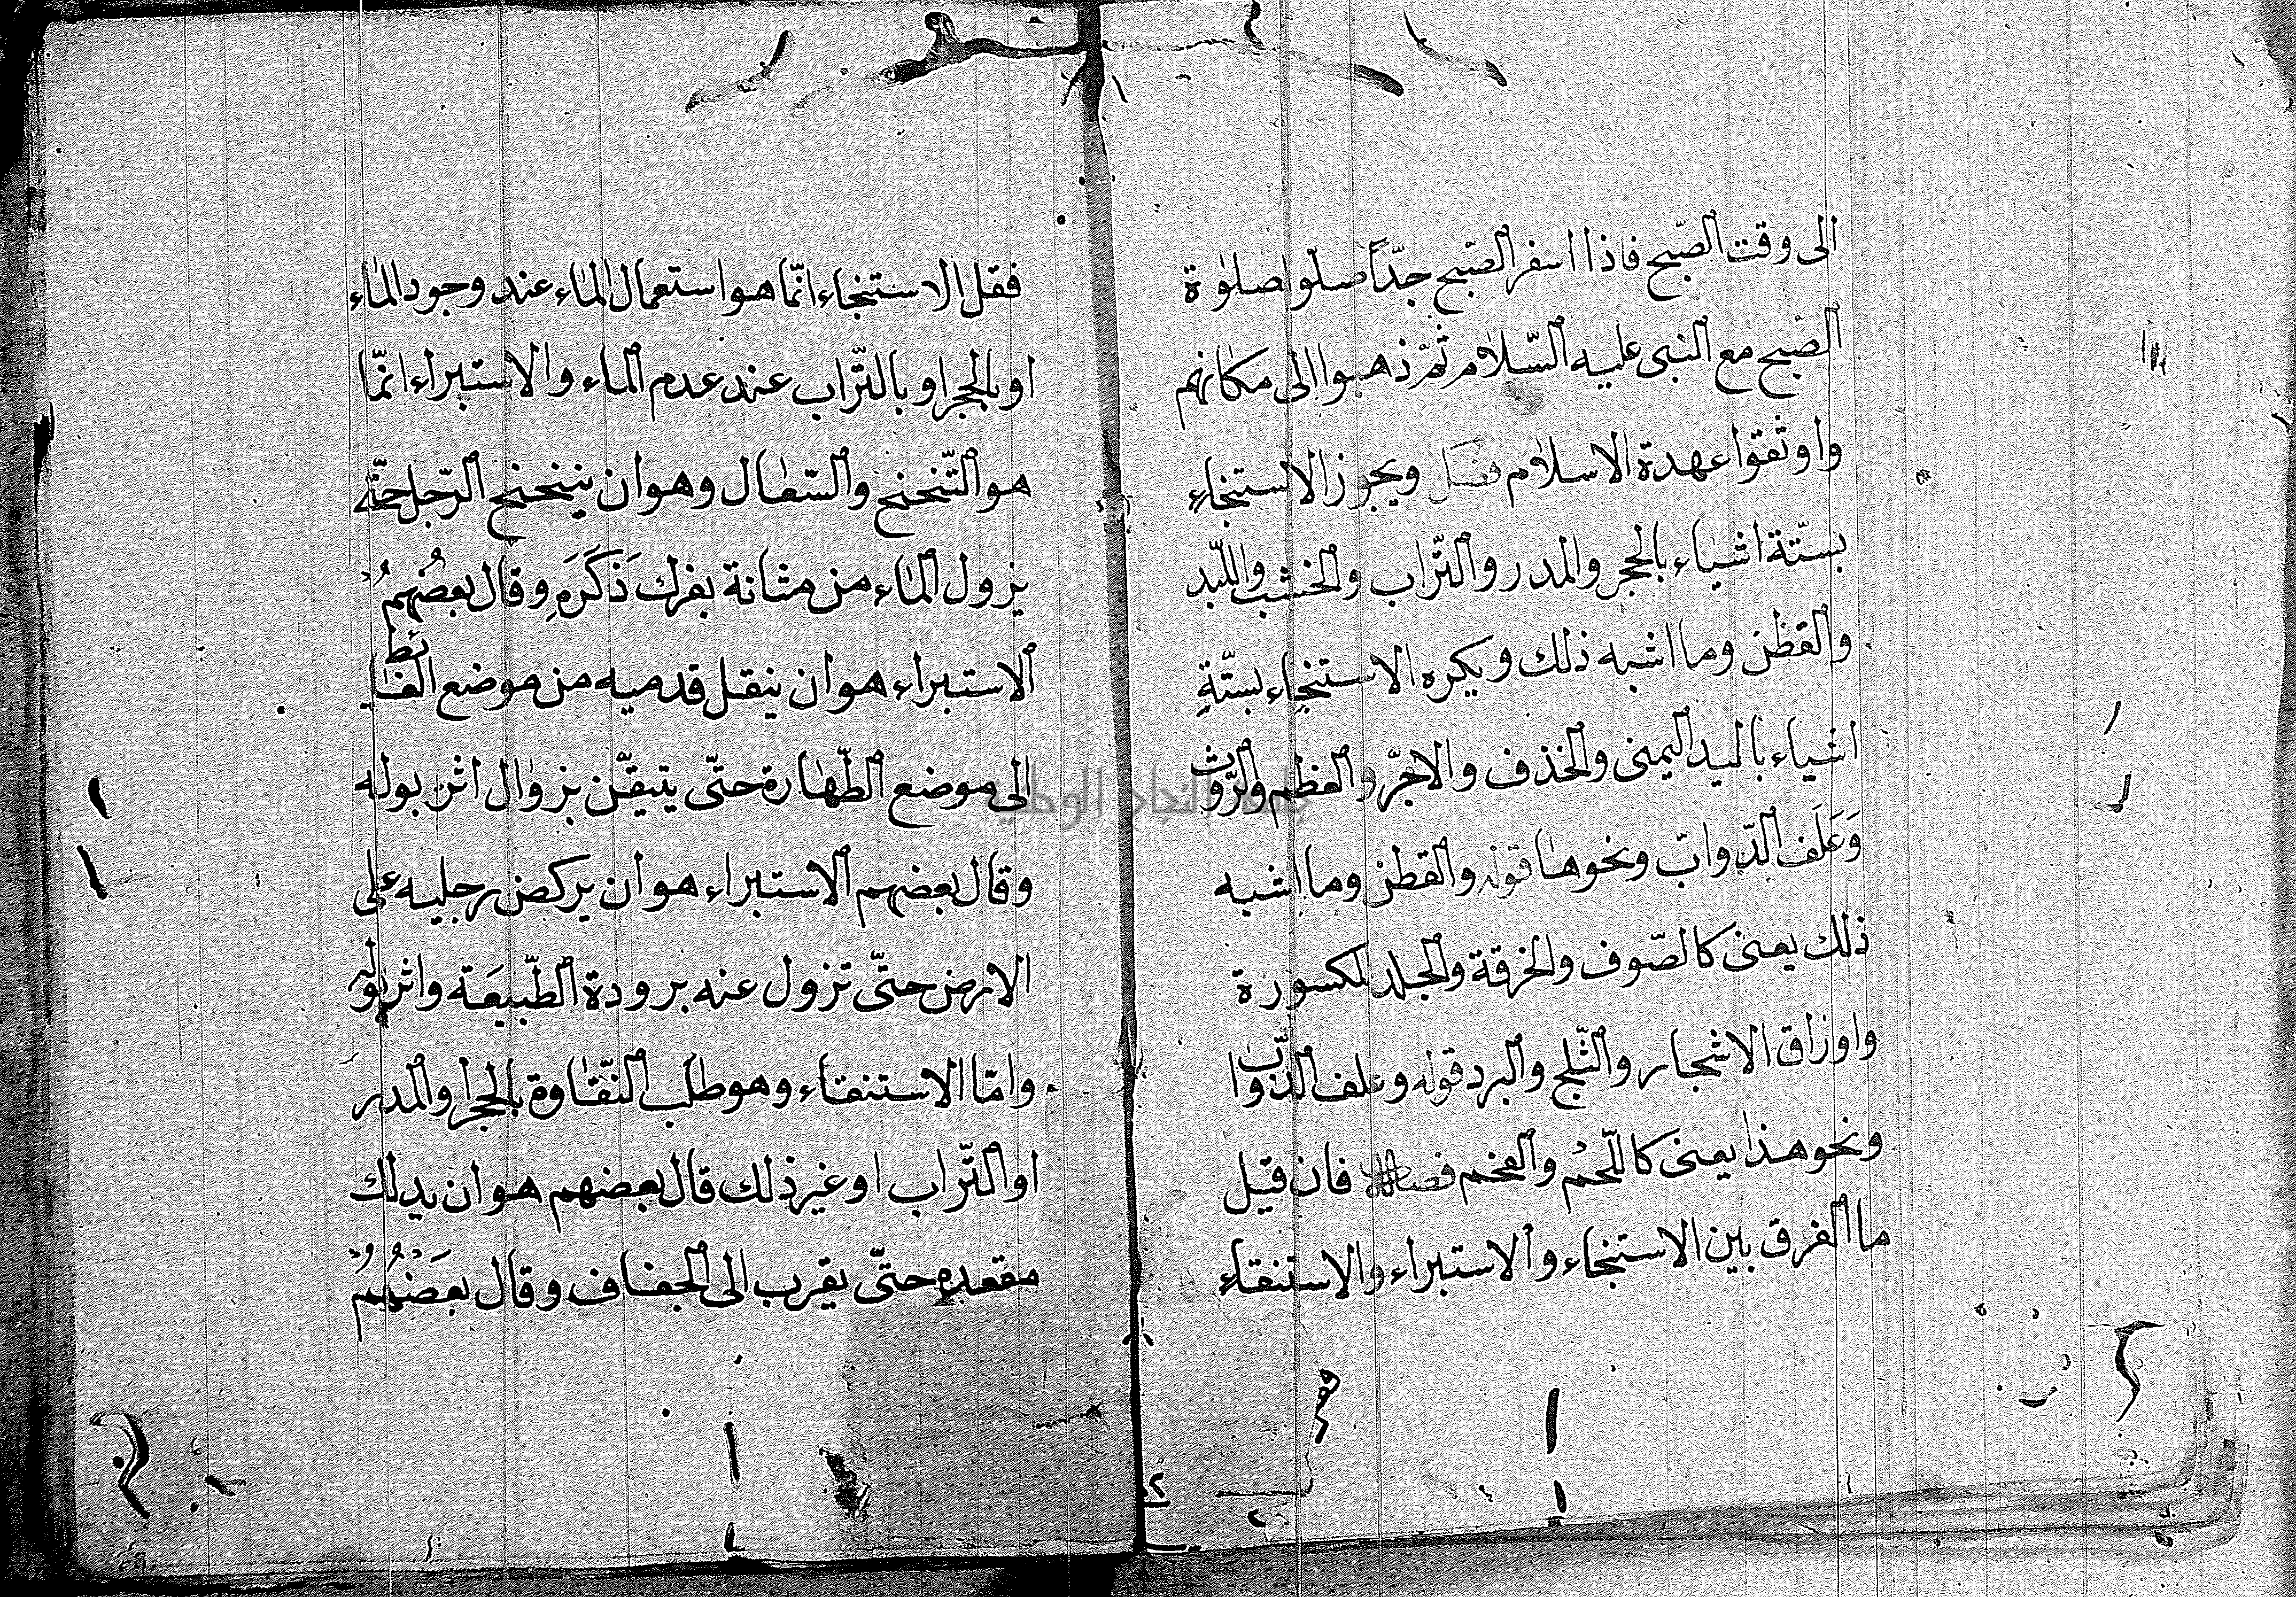 الى وقت الصّبح فاذا اسفر الصّبح جدّاً صلّوا صلوٰة
الصّبح مع النبى عليه السّلام ثمّ ذهبوا الى مكانهم
واوثقوا عهدة الاسلام فصل ويجوز الاستنجاء
بستّة اشياء بالحجر والمدر والتّراب والخشب واللّبد
والقطن وما اشبه ذلك ويكره الاستنجاء بستّةِ
اشياء باليد اليمنى والخذف والاجرّ والعظم والرّوث
وَعَلَف الدّوابّ ونحوها قوله والقطن وما اشبه
ذلك يعنى كالصّوف والخرقة والجلد المكسورة
واوراق الاشجار والثّلج والبرد قوله وعلف الدّوابّ
ونحو هذا يعنى كاللّحم والفخم فصل فان قيل
ما الفرق بين الاستنجاء والاستبراء والاستنقاء
فقل
فقل الاستنجاء انّما هو استعمال الماء عند وجود الماء
او بالحجر او بالتّراب عند عدم الماء والاستبراء انّما
هو التّنحنح والسّعال وهو ان يتنحنح الرّجل حتّه
يزول الماء من مثانة بفرك ذَكَرَهِ وقال بعضُهمُ
الاستبراء هو ان ينقل قدميه من موضع الغائط
الى موضع الطّهارة حتّى يتيقّن بزوال اثر بوله
وقال بعضهم الاستبراء هو ان يركض رجليه على
الارض حتّى تزول عنه برودة الطّبيعَة واثر بوله
وامّا الاستنقاء وهو طلب النّقاوة بالحجر او المدر
او التّراب او غير ذلك قال بعضهم هو ان يدلك
مقعده حتّى يقرب الى الجفاف وقال بعَضُهُمُ
جامعة النجاح الوطنية